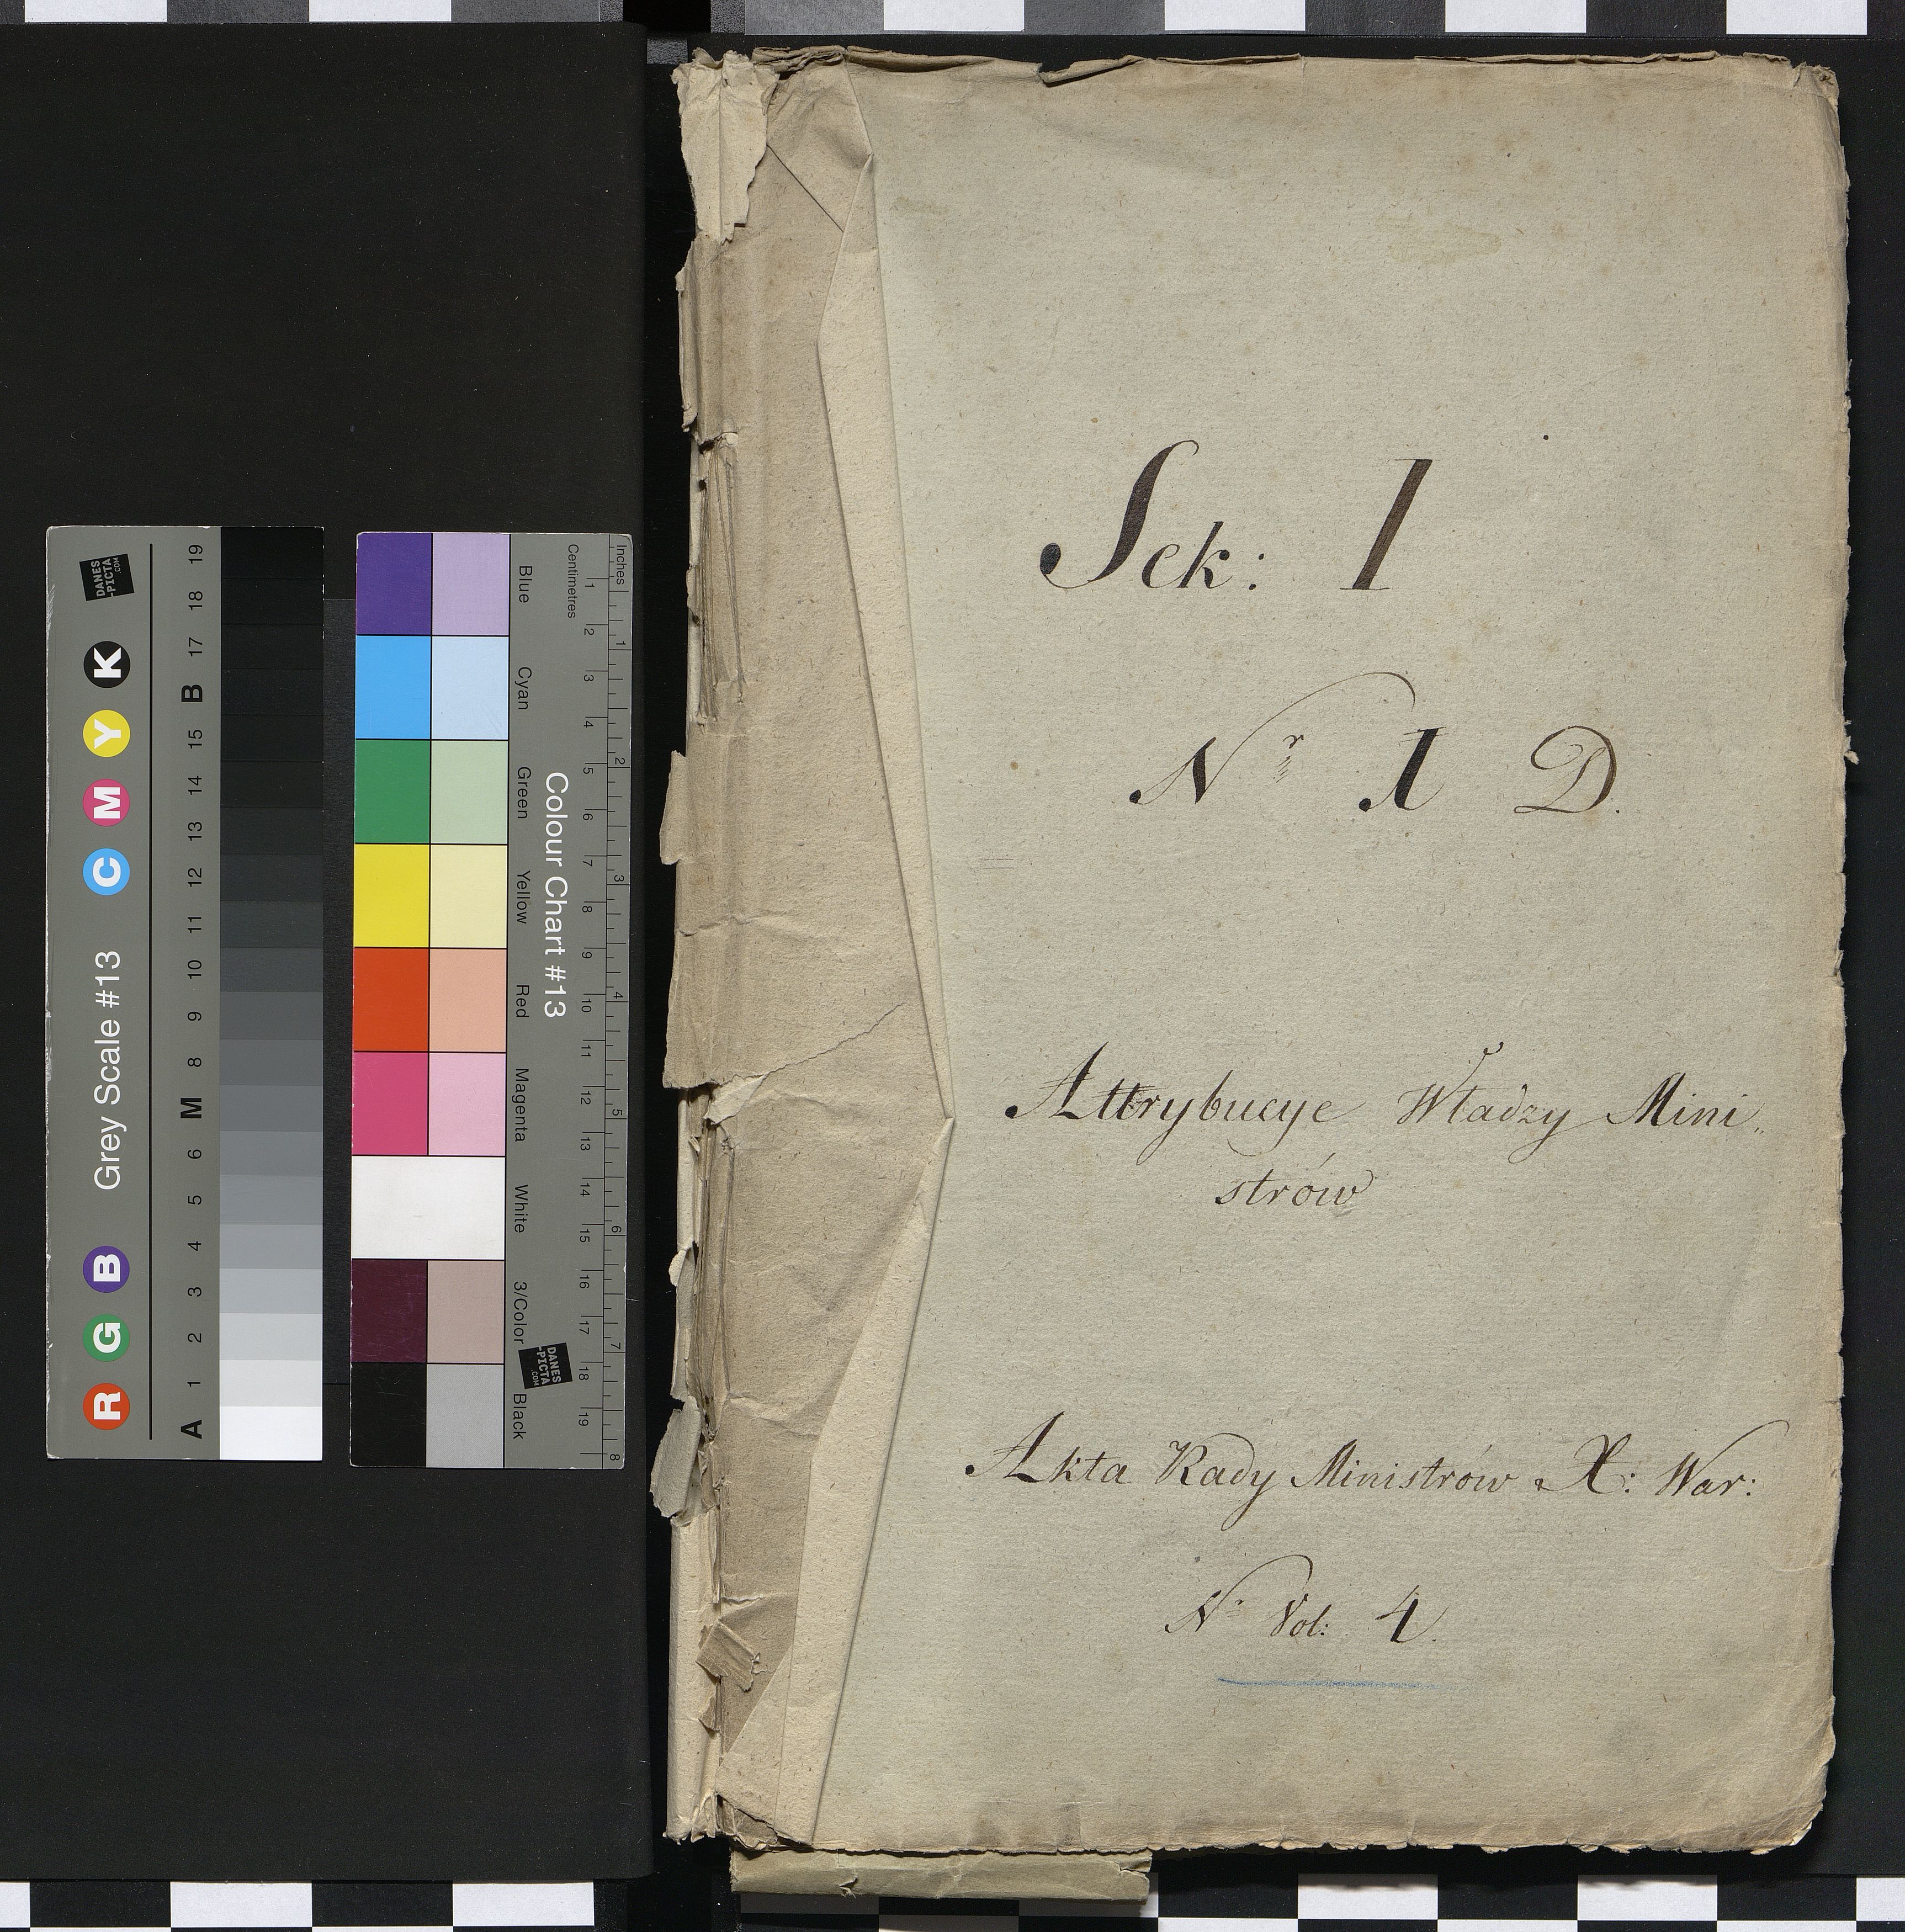 Sek: I
Nr 1 D.
Attrybucye Władzy Mini„
strów
Akta Rady Ministrów X: War:
No Vol: 4.
Grey Scale #13
R G B C M Y K
A 1 2 3 4 5 6 M 8 9 10 11 12 13 14 15 B 17 18 19
DANES
-PICTA
.COM
Colour Chart #13
Blue Cyan Green Yellow Red Magenta White 3/Color Black
Inches 1 2 3 4 5 6 7 8
Centimetres 1 2 3 4 5 6 7 8 9 10 11 12 13 14 15 16 17 18 19
DANES
-PICTA
.COM